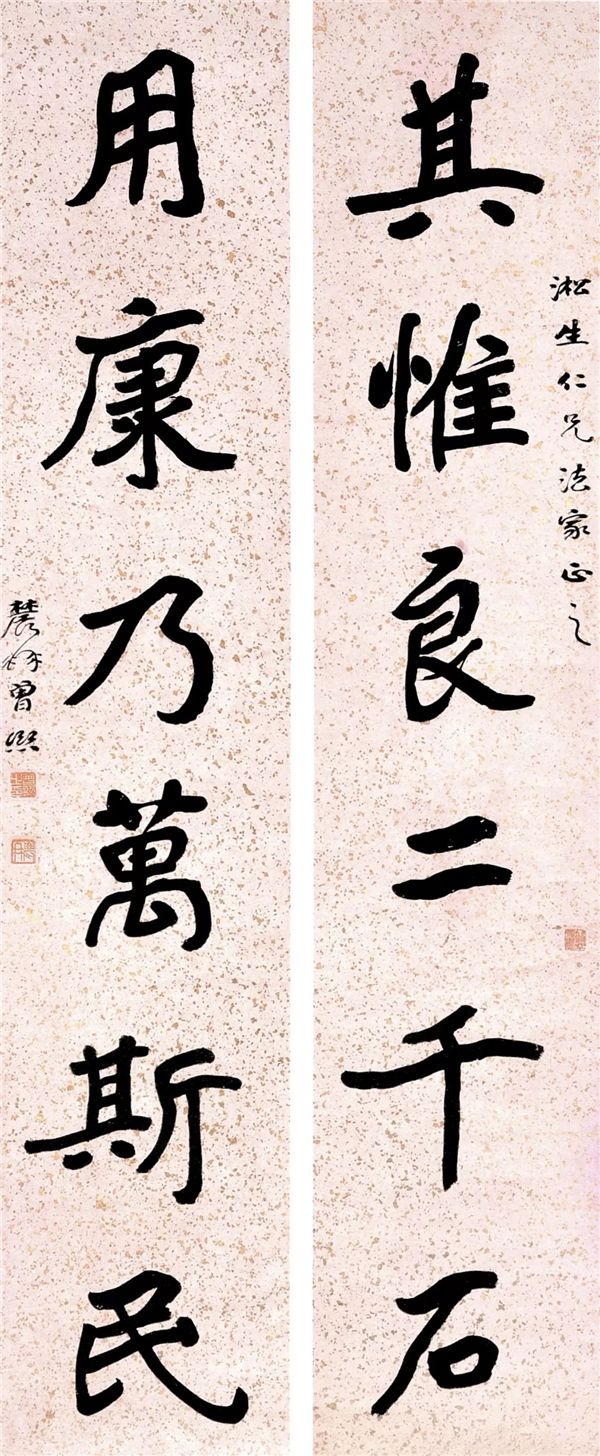 淞生仁兄法家正之
其惟良二千石
用康乃萬斯民
農髯曾熙